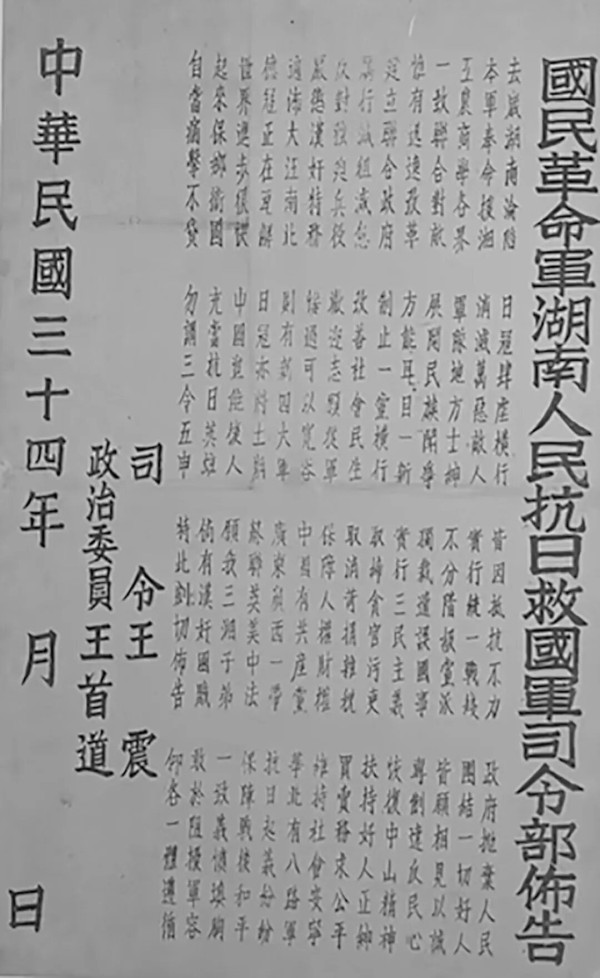 國民革命軍湖南人民抗日救國軍司令部佈告
去歲湖南淪陷 日寇肆虐橫行 皆因抵抗不力 政府拋棄人民
本軍奉命援湘 消滅萬惡敵人 實行統一戰綫 團結一切好人
工農商學各界 軍隊地方士紳 不分階級黨派 皆願相見以誠
一致聯合對敵 展開民族鬭爭 獨裁遺誤國事 專制違反民心
惟有迅速改革 方能耳目一新 實行三民主義 恢復中山精神
建立聯合政府 制止一黨橫行 取締貪官污吏 扶持好人正紳
厲行減租減息 改善社會民生 取消苛捐雜稅 買賣務求公平
反對強迫兵役 歡迎志願從軍 保障人權財權 維持社會安寧
嚴懲漢奸特務 悔過可以寬容 中國有共產黨 華北有八路軍
遍佈大江南北 則有新四大軍 廣東 西一帶 抗日起義紛紛
德寇正在瓦解 日寇亦將土崩 聯英美中法 保障戰後和平
世界進步很快 中國豈能後人 願我三湘子弟 一致義憤填胸
起來保鄉衛國 充當抗日英雄 倘有漢奸國賊 敢於阻撓軍容
自當痛擊不貸 勿謂三令五申 特此剴切佈告 仰各一體遵循
司令王震
政治委員王首道
中華民國三十四年 月 日